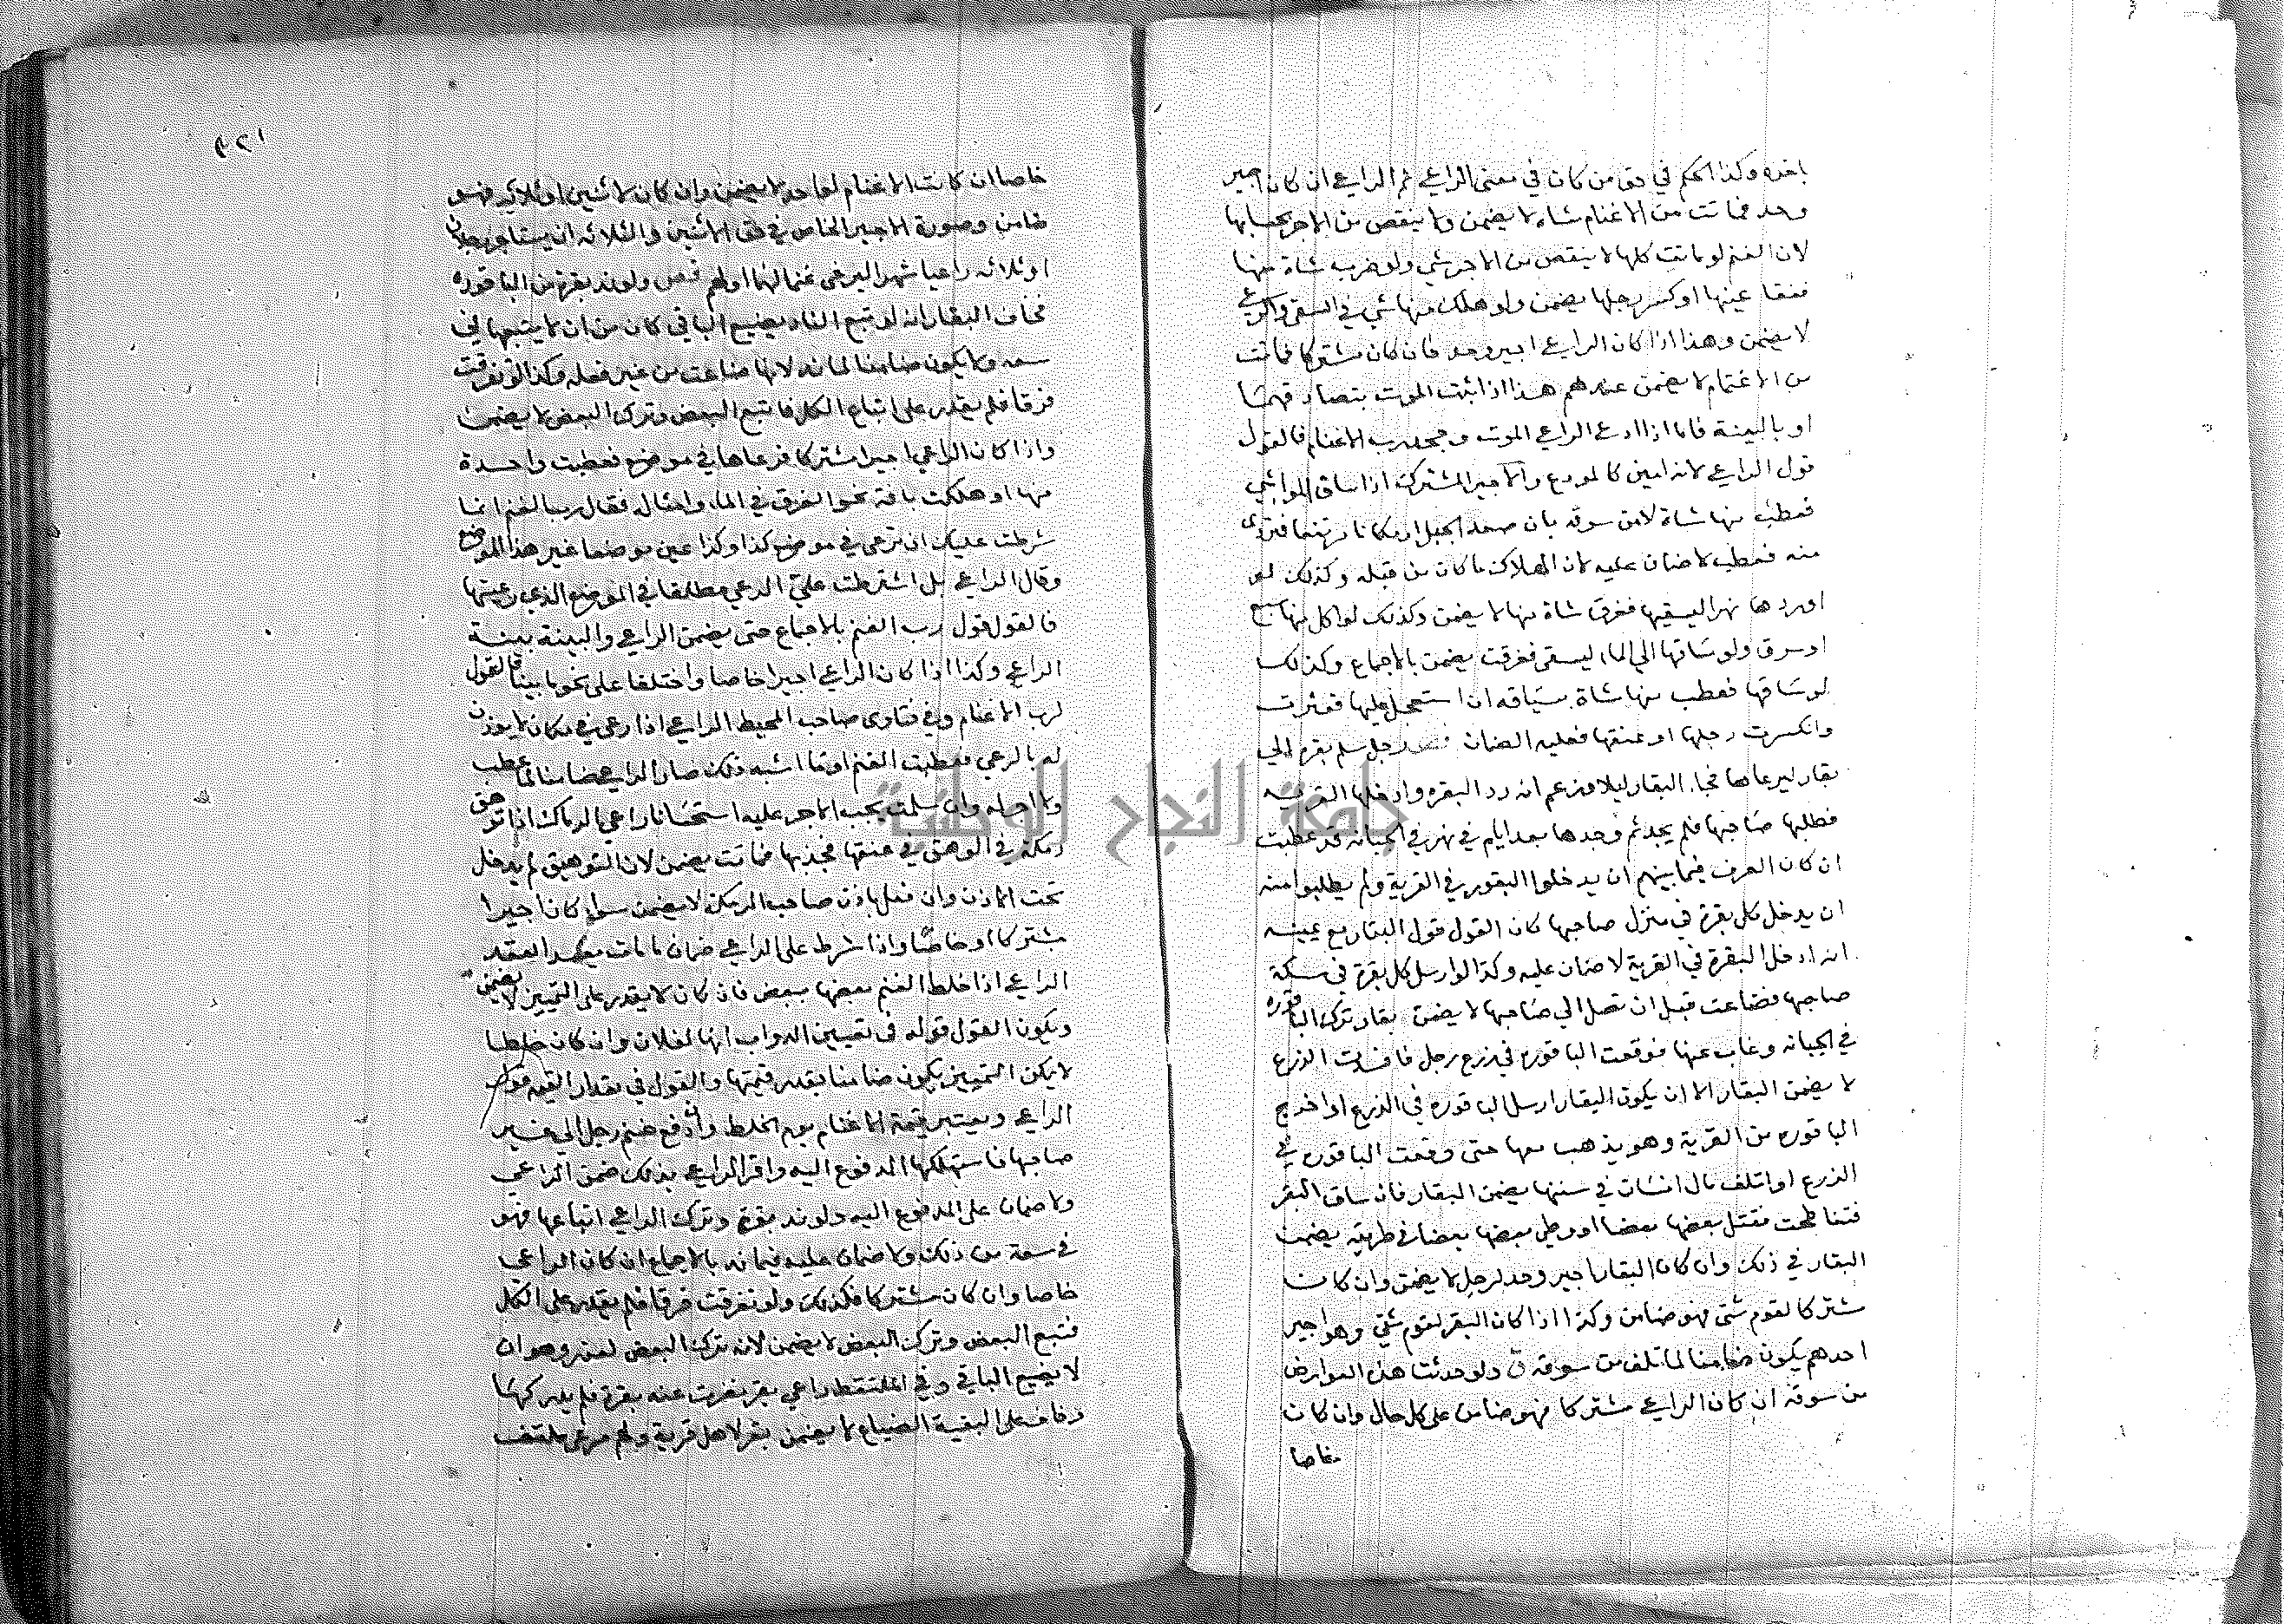 باخذه وكذا الحكم في حق من كان في معنى الراعي ثم الراعي ان كان اجير
وحد فماتت من الاغنام شاة لا يضمن ولا ينقص من الاجر بحسابها
لان الغنم لو ماتت كلها لا ينتقص من الاجر شي ولو ضرب شاة منها
ففقا عينها او كسر رجلها يضمن ولو هلك منها شي في السقي والرعي
لا يضمن وهذا اذا كان الراعي اجير وحد فان كان مشتركا فماتت
من الاغنام لا يضمن عندهم هذا اذا ثبت الموت بتصادقهما
او بالبينة فاما اذا ادعى الراعي الموت وجحد رب الاغنام فالقول
قول الراعي لانه امين كالمودع والاجير المشترك اذا ساق المواشي
فعطب منها شاة لا من سوقه بان صعد الجبل او مكانا مرتفعا فتردى
منه فعطب لا ضمان عليه لان الهلاك ما كان من قبله وكذلك لو
اوردها نهرا ليسقيها فغرق شاة منها لا يضمن وكذلك لو اكل منها سبع
او سرق ولو ساقها الى الماء ليسقى فغرقت يضمن بالاجماع وكذلك
لو ساقها فعطب منها شاة بسياقه ان استعجل عليها فعثرت
وانكسرت رجلها او عنقها فعليه الضمان رجل سلم بقره الى
بقار ليرعاها فجاء البقار ليلا فزعم انه رد البقره وادخلها القريه
فطلبها صاحبها فلم يجد ثم وجدها بعد ايام في نهر في الجبانه قد عطبت
ان كان العرف فيما بينهم ان يدخلوا البقور في القرية ولم يطلبوا منه
ان يدخل كل بقرة في منزل صاحبها كان القول قول البقار مع يمينه
انه ادخل البقرة في القرية لا ضمان عليه وكذا لو ارسل كل بقرة في سكة
صاحبها فضاعت قبل ان تصل الى صاحبها لا يضمن بقار ترك الباقوره
في الجبانه وغاب عنها فوقعت الباقوره في زرع رجل فافسدت الزرع
لا يضمن البقار الا ان يكون البقار ارسل الباقوره في الزرع او اخرج
الباقوره من القرية وهو يذهب معها حتى وقعت الباقوره في
الزرع او اتلف مال انسان في سننها يضمن البقار فان ساق البقر
فتناطحت فقتل بعضها بعضا او وطي بعضها بعضا في طريقه يضمن
البقار في ذلك وان كان البقار اجير وحد لرجل لا يضمن وان كان
مشتركا لقوم شتى فهو ضامن وكذا اذا كان البقر لقوم شتى وهو اجير
احدهم يكون ضامنا لما تلف من سوقه ولو حدثت هذه العوارض
من سوقه ان كان الراعي مشتركا فهو ضامن على كل حال وان كان
خاصا
٤٢١
خاصا ان كانت الاغنام لواحد لا يضمن وان كان لاثنين او ثلاثه فهو
ضامن وصورة الاجير الخاص في حق الاثنين والثلاثه ان يستاجر رجلان
او ثلاثه راعيا شهرا ليرعى غنما لهما او لهم ولو ند بقرة من الباقوره
فخاف البقار انه لو تبع الناد يضيع الباقي كان من ان لا يتبعها في
سعه ولا يكون ضامنا لما ند لانها ضاعت من غير فعله وكذا لو تفرقت
فرقا فلم يقدر على اتباع الكل فاتبع البعض وترك البعض لا يضمن
واذا كان الراعي اجيرا مشتركا فرعاها في موضع فعطبت واحدة
منها او هلكت بافة نحو الغرق في الماء وامثاله فقال رب الغنم انما
شرطت عليك ان ترعى في موضع كذا وكذا عين موضعا غير هذا الموضع
وقال الراعي بل اشترطت علي الرعي مطلقا في الموضع الذي رعيتها
فالقول قول رب الغنم بالاجماع حتى يضمن الراعي والبينة بينة
الراعي وكذا اذا كان الراعي اجيرا خاصا واختلفا على نحو ما بينا فالقول
لرب الاغنام وفي فتاوى صاحب المحيط الراعي اذا رعى في مكان لا يوذن
له بالرعي فعطبت الغنم او ما اشبه ذلك صار الراعي ضامنا لما عطب
ولا اجر له وان سلمت يجب الاجر عليه استحسانا راعي الرماك اذا توهق
رمكة في الوهق في عنقها فجذبها فماتت يضمن لان التوهيق لم يدخل
تحت الاذن وان فعل باذن صاحب الرمكه لا يضمن سواء كان اجيرا
مشتركا او خاصا واذا شرط على الراعي ضمان ما مات يفسد العقد
الراعي اذا خلط الغنم بعضها ببعض فان كان لا يقدر على التمييز لا يضمن
ويكون القول قوله في تعيين الدواب انها لفلان وان كان خلطا
لا يمكن التمييز يكون ضامنا بقدر قيمتها والقول في مقدار القيمه قول
الراعي ويعتبر قيمة الاغنام يوم الخلط دفع غنم رجل الى غير
صاحبها فاستهلكها المدفوع اليه واقر الراعي بذلك ضمن الراعي
ولا ضمان على المدفوع اليه ولو ند بقرة وترك الراعي اتباعها فهو
في سعة من ذلك ولا ضمان عليه فيما ند بالاجماع ان كان الراعي
خاصا وان كان مشتركا فكذلك ولو تفرقت فرقا فلم يقدر على الكل
فتبع البعض وترك البعض لا يضمن لانه ترك البعض لعذر وهو ان
لا يضيع الباقي وفي الملتقط راعي بقر نفرت عنه بقرة فلم يدركها
وخاف على البقية الضياع لا يضمن بقر لاهل قرية ولهم مرعى ملتف
جامعة النجاح الوطنية